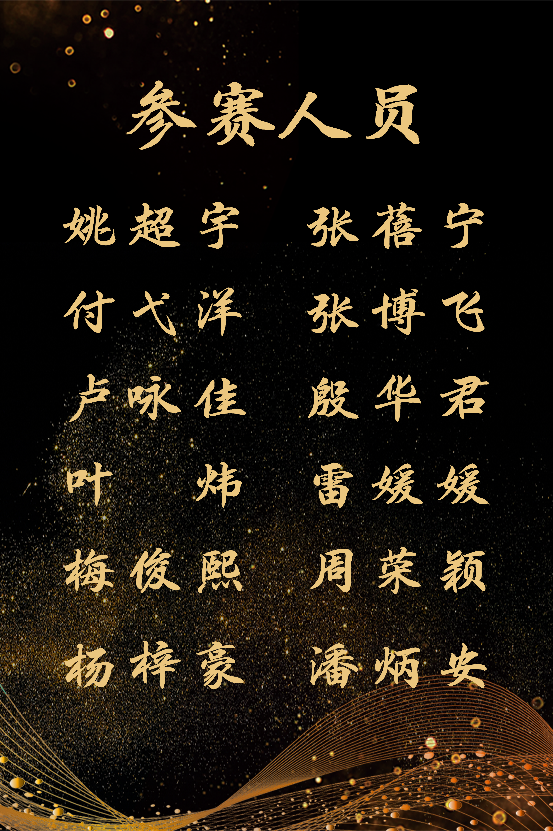 参赛人员
姚超宇 张蓓宁
付弋洋 张博飞
卢咏佳 殷华君
叶 炜 雷媛媛
梅俊熙 周荣颖
杨梓豪 潘炳安